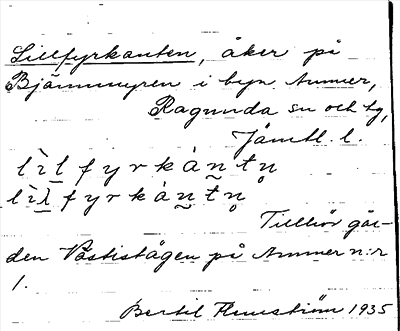 Lillfyrkanten, åker på
Bjännmyren i byn Ammer,
Ragunda sn och tg,
Jämtl. l.
lìl fyrkàntn̥
lìl fyrkàntn̥
Tillhör går-
den Västistågen på Ammer n:r
1.
Bertil Flemström 1935